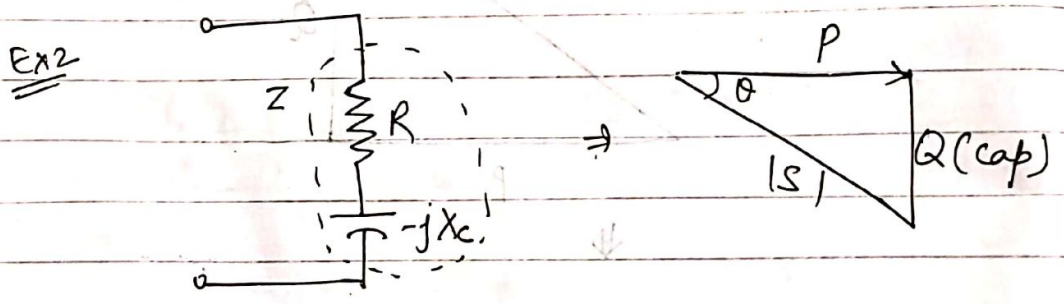 Ex2
Z
R
-jXc
⇒
P
θ
Q(cap)
|S|